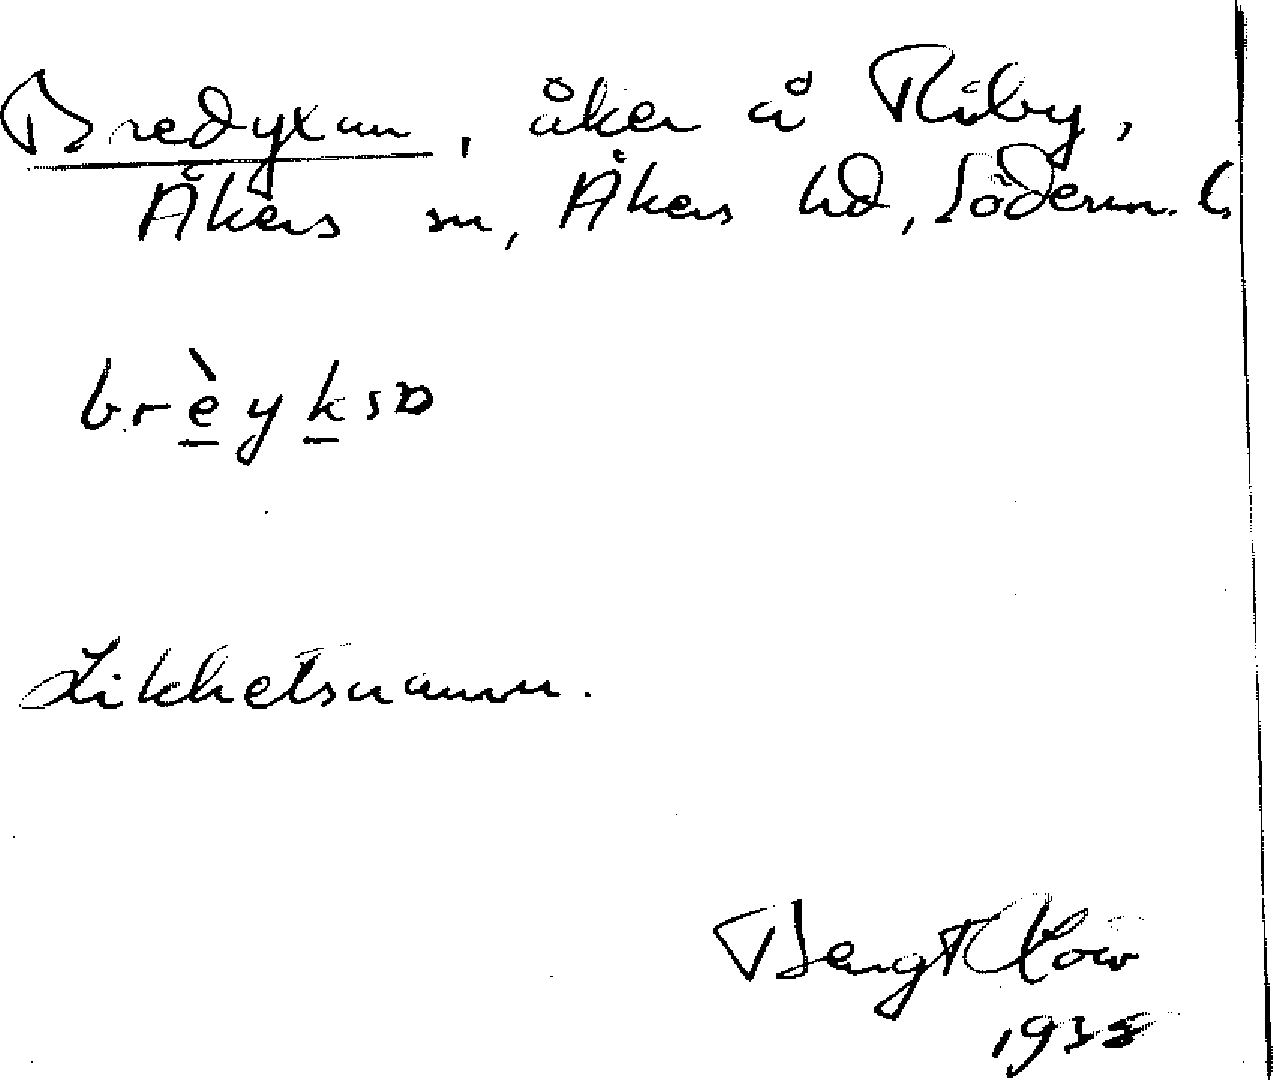 Bredyxan, åker å Råby,
Åkers sn, Åkers hd, Söderm. l.
brèyksɒ
Likhetsnamn.
Bengt
1938